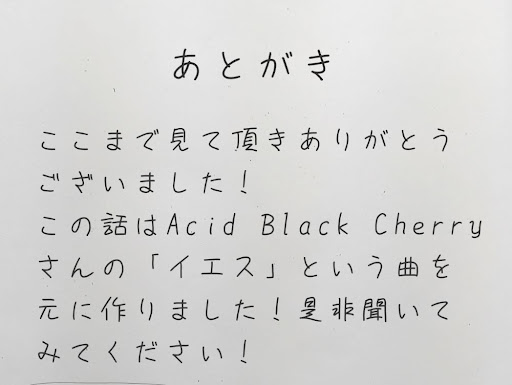 あとがき
ここまで見て頂きありがとう
ございました！
この話はAcid Black Cherry
さんの「イエス」という曲を
元に作りました！是非聞いて
みてください！